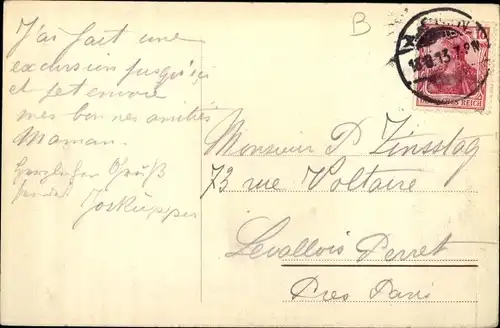 B
J'ai fait une
excursion jusqu'ici
et t'envoie
mes bonnes amitiés
Maman.
Herzlichen Gruß
sendet Joskupper
10
DEUTSCHES REICH
Monsieur P. Zinsstag
73 rue Voltaire
Levallois Perret
Près Paris